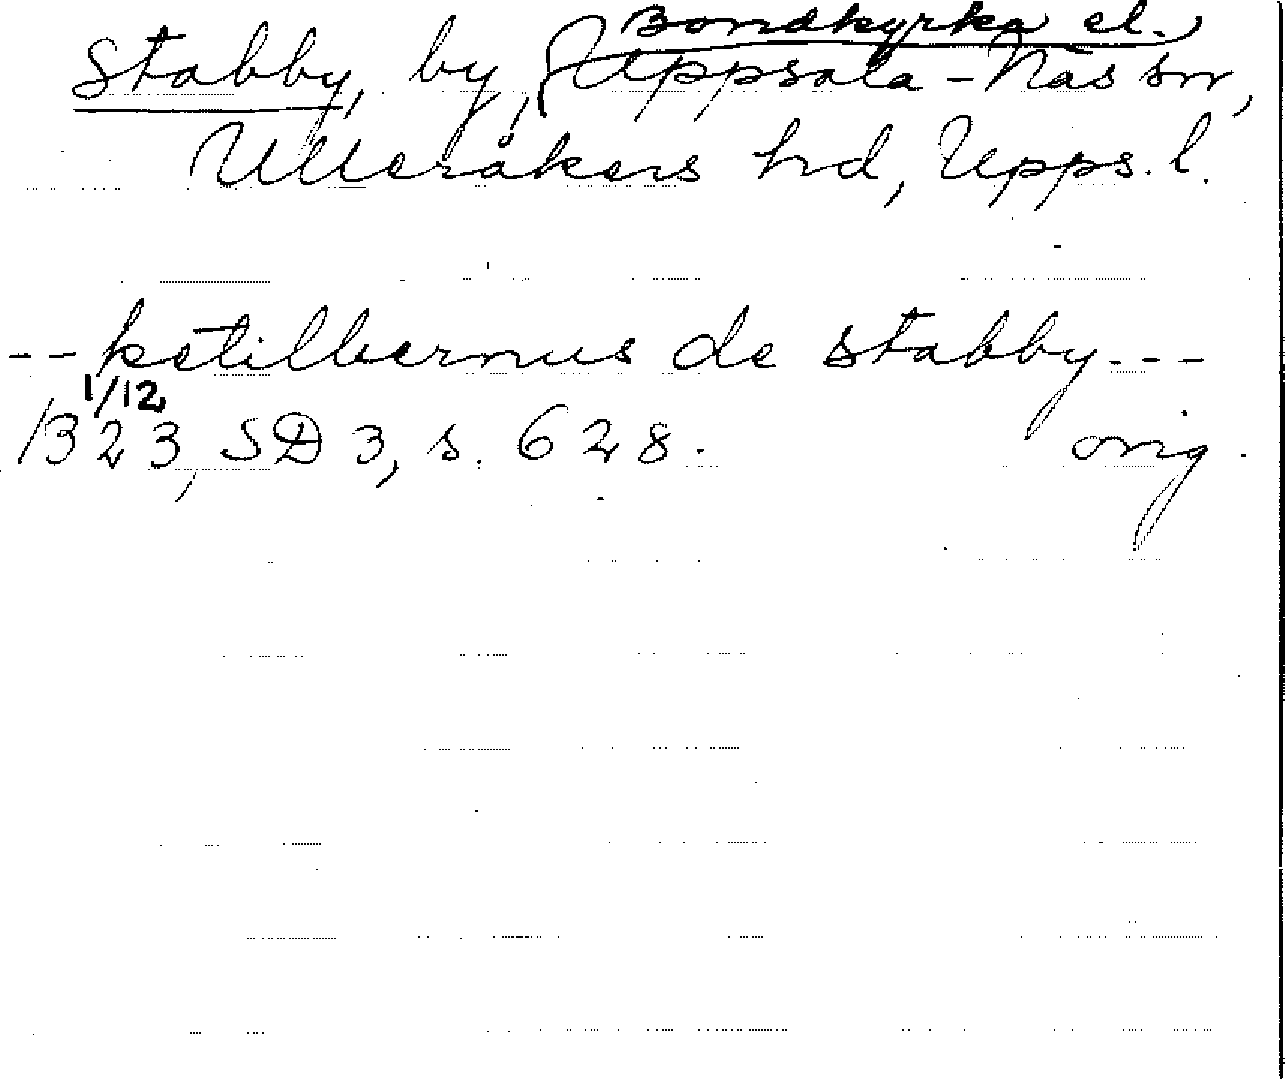 Bondkyrka el.
Stabby, by, Uppsala-Näs sn,
Ulleråkers hd, Upps. l.
--ketilbernus de stabby---
1/12
1323, SD 3, s. 628. orig.